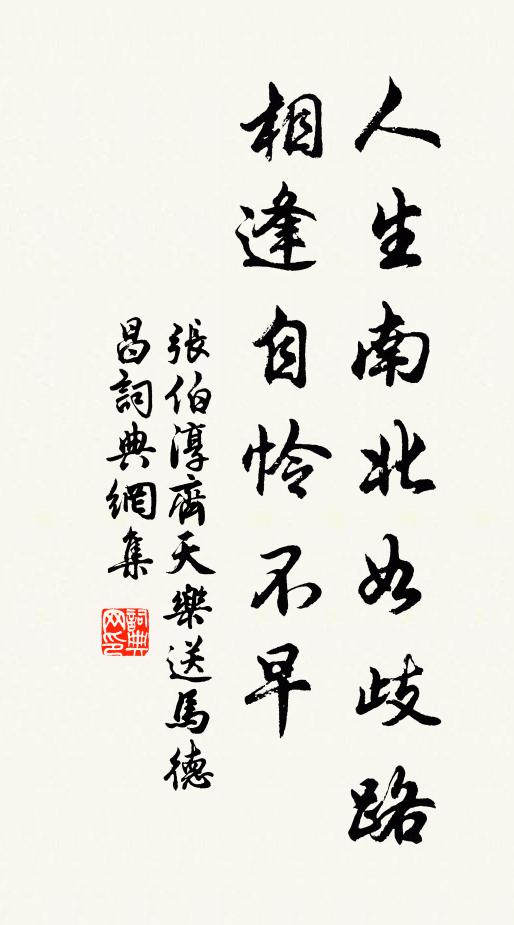 人生南北如歧路
相逢自怜不早
張伯淳齊天樂送馬德
昌詞典網集
詞典網印